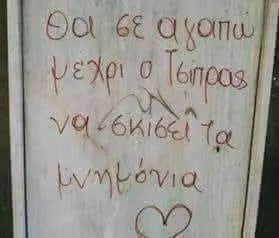 θα σε αγαπω
μεχρι ο Τσιπρας
να σκισει τα
μνημόνια